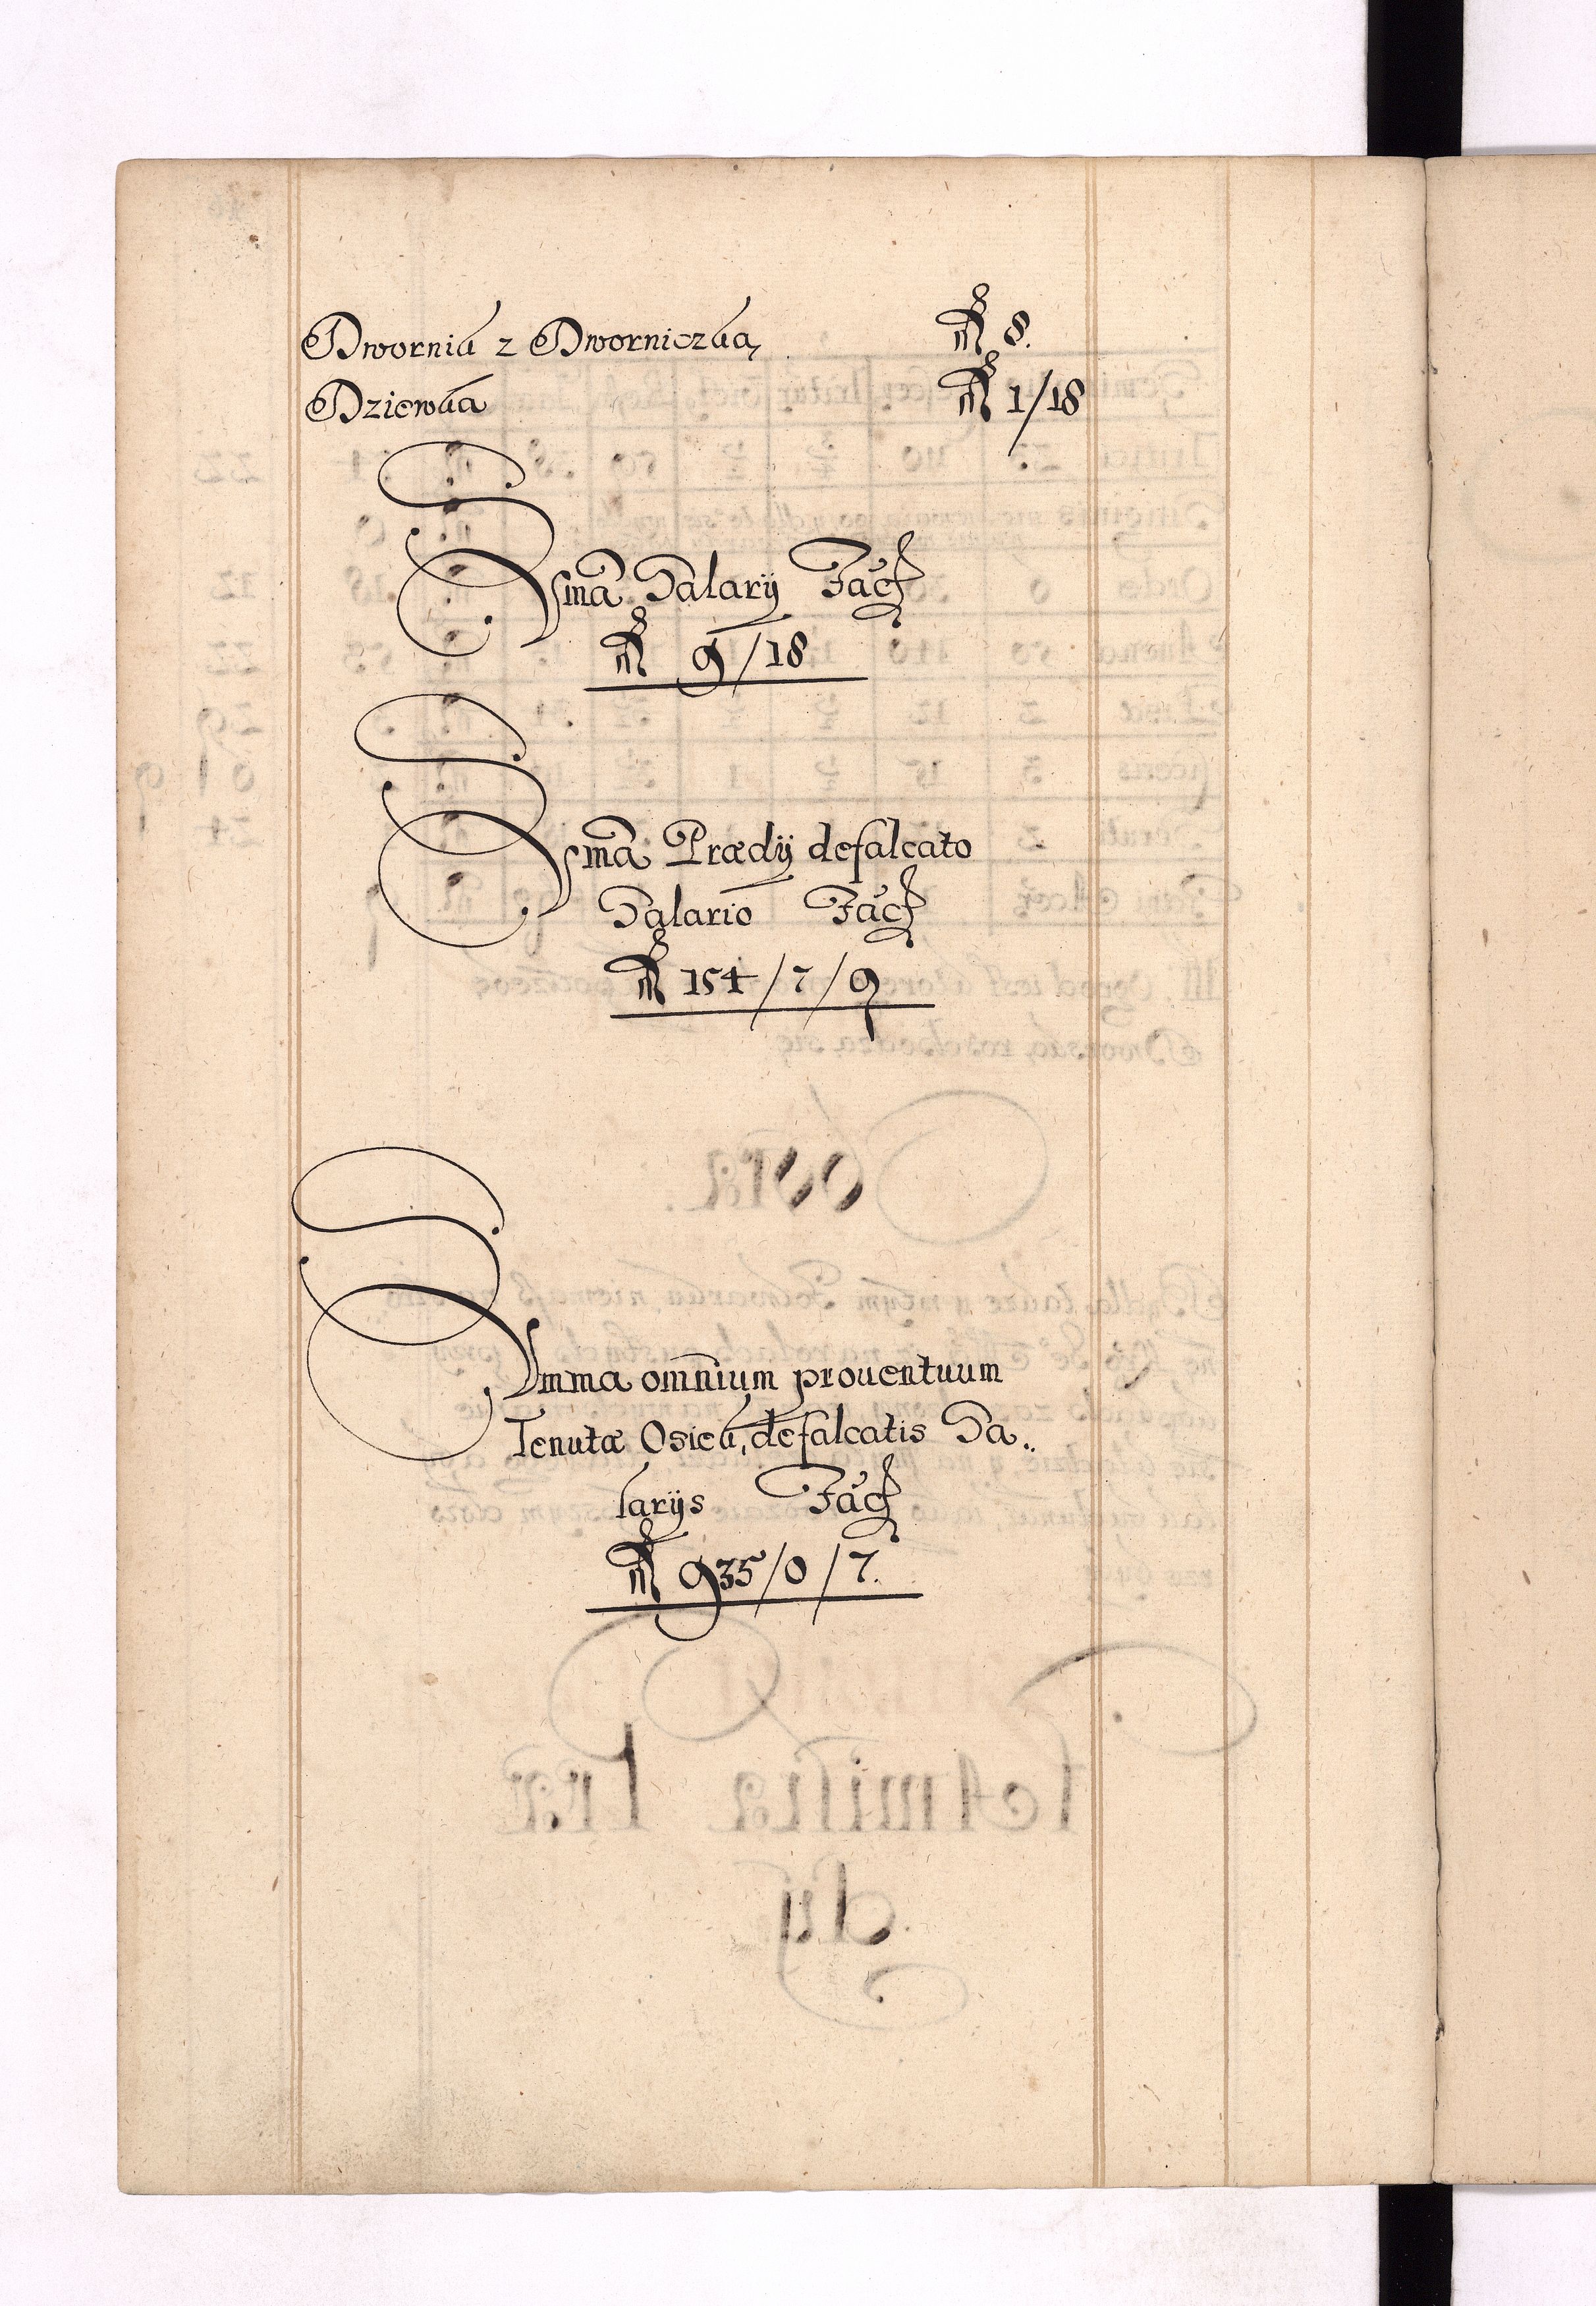 Dwornik z Dworniczką m 8.
Dziewka m 1/18
Sma Salarij Fac
m 9/18
Sma Prædij defalcato
Salario Fac
m 154/7/9
Summa omnium prouentuum
Tenutæ Osiek, defalcatis Sa..
larijs Fac
m 935/0/7.